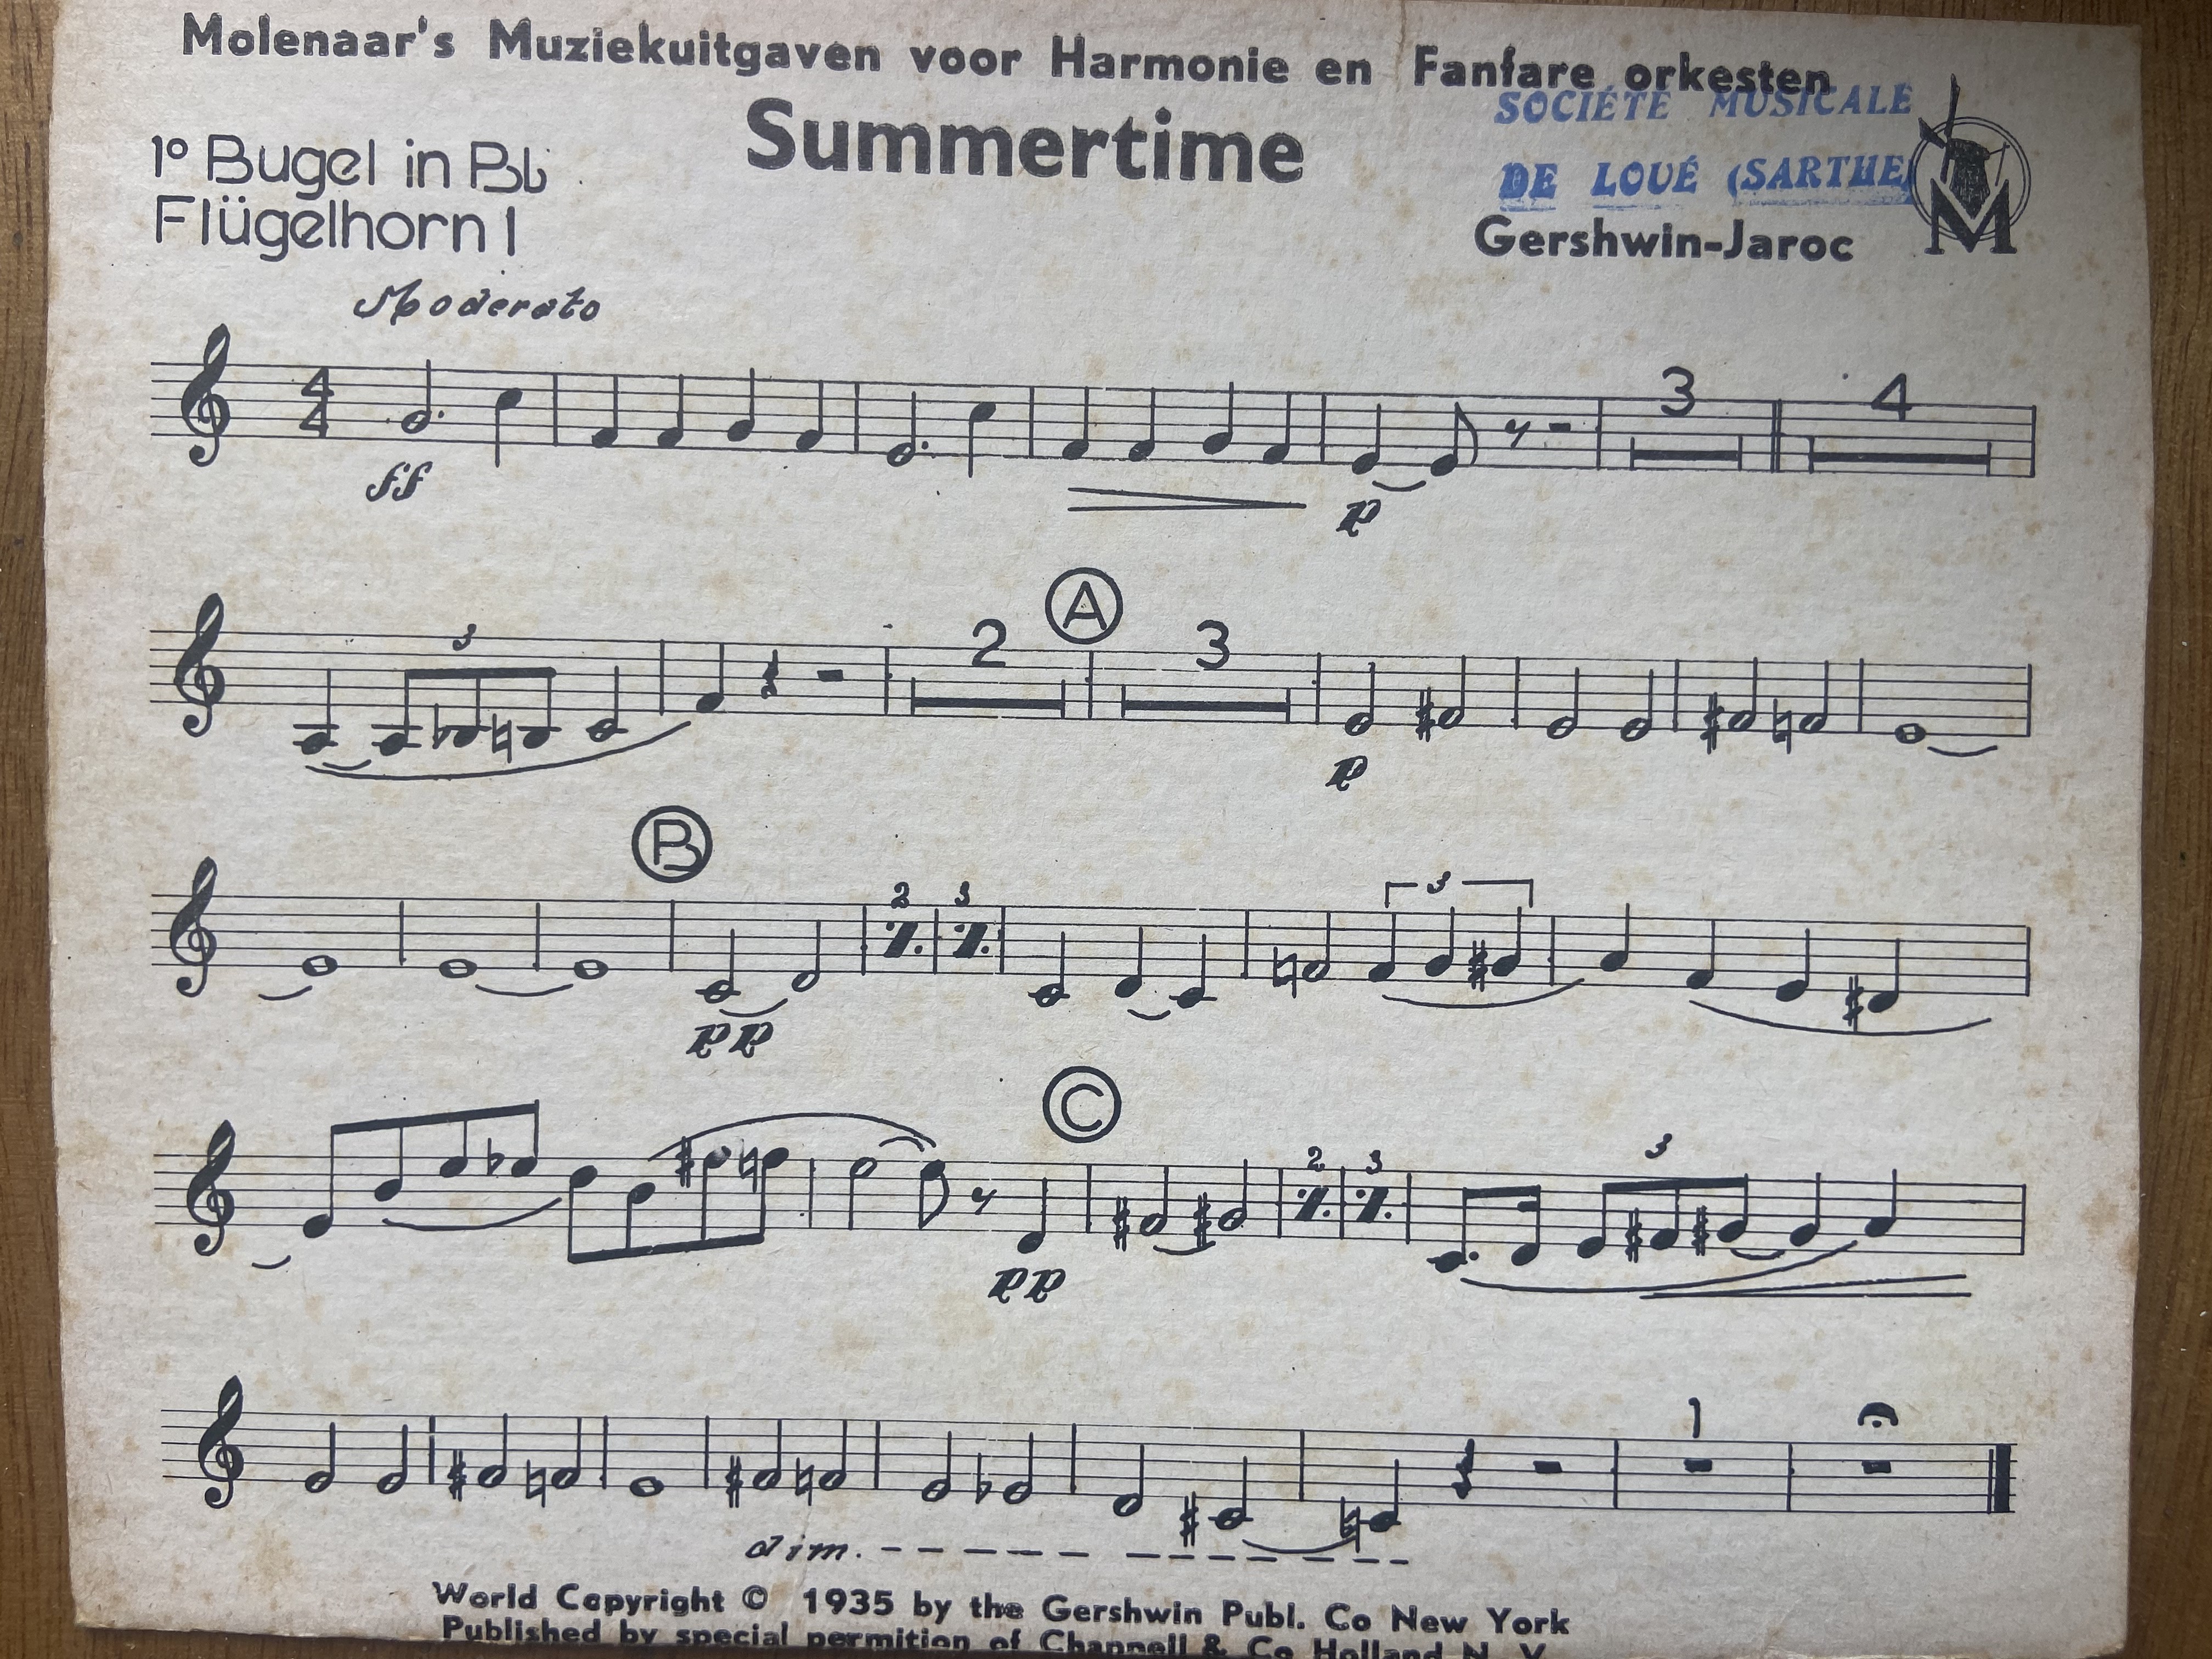 Molenaar's Muziekuitgaven voor Harmonie en Fanfare orkesten
SOCIÉTÉ MUSICALE
Summertime
1º Bugel in Bb
DE LOUÉ (SARTHE)
Flügelhorn I
Gershwin-Jaroc
M
Moderato
4
4
3
4
ff
p
3
2
A
3
p
B
2
3
3
pp
C
2
3
3
pp
1
dim.
World Copyright © 1935 by the Gershwin Publ. Co New York
Published by special permition of Chappell & Co Holland N. V.